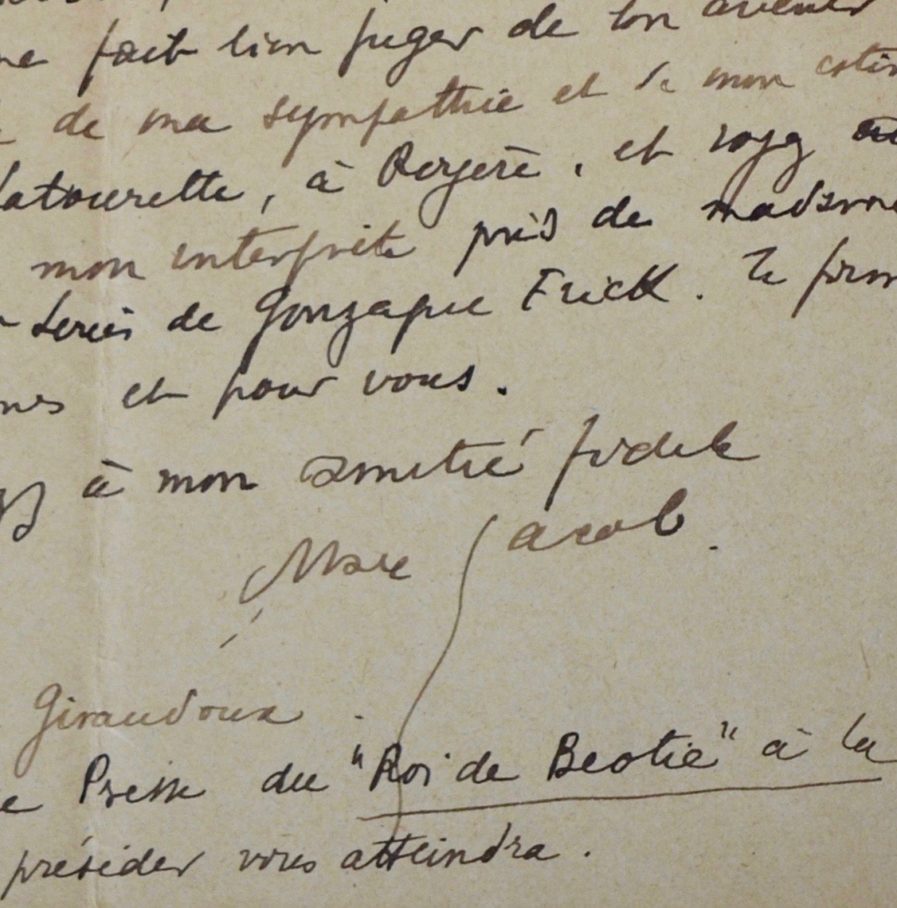 fait bien juger de ton avenir
de ma sympathie et de mon estim
Latourette, à Royère, et soyez
mon interprète près de madame
de Gonzague Frick. Je
et pour vous.
à mon amitié fidele
Max Jacob.
Giraudoux.
Presse du "Roi de Beotie" à la
présider vous atteindra.